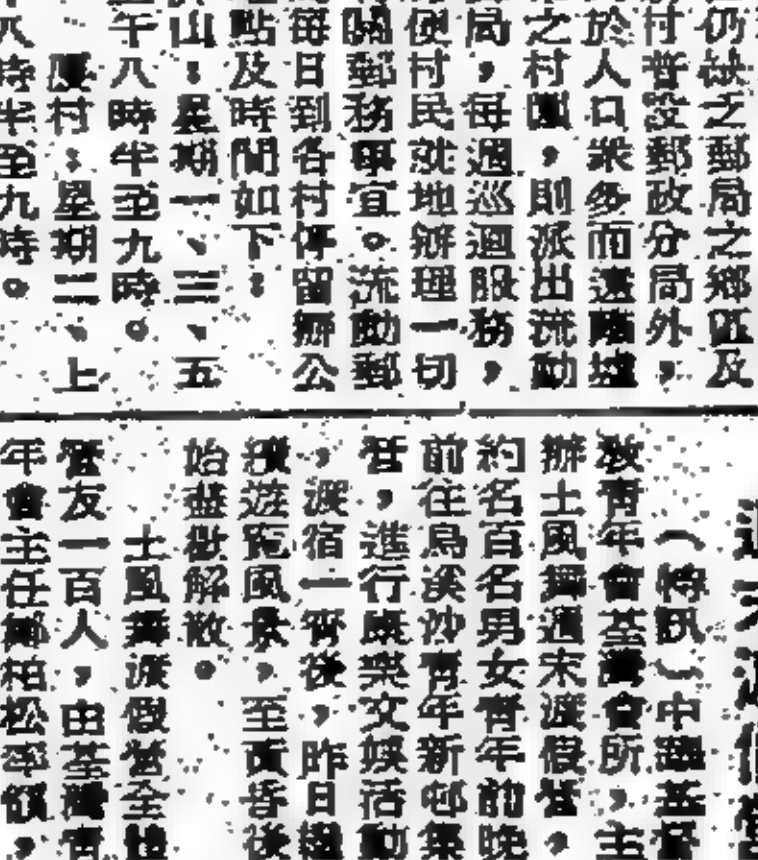 仍缺乏郵局之鄉區及
村普設郵政分局外，
於人口眾多而遠離墟
之村圍，則派出流動
局，每週巡迴服務，
便村民就地辦理一切
關郵務事宜。流動郵
每日到各村停留辦公
點及時間如下：
山：星期一、三、五
午八時半至九時。
廈村：星期二、上
八時半至九時。
（特訊）中國基督
教青年會荃灣會所，主
辦士風舞週末渡假營，
約名百名男女青年前晚
前往烏溪沙青年新邨集
營，進行康樂文娛活動
，渡宿一宵後，昨日繼
續遊玩風景，至黃昏後
始盡歡解散。
士風舞渡假營全體
營友一百人，由荃灣青
年會主任鄭柏松率領，